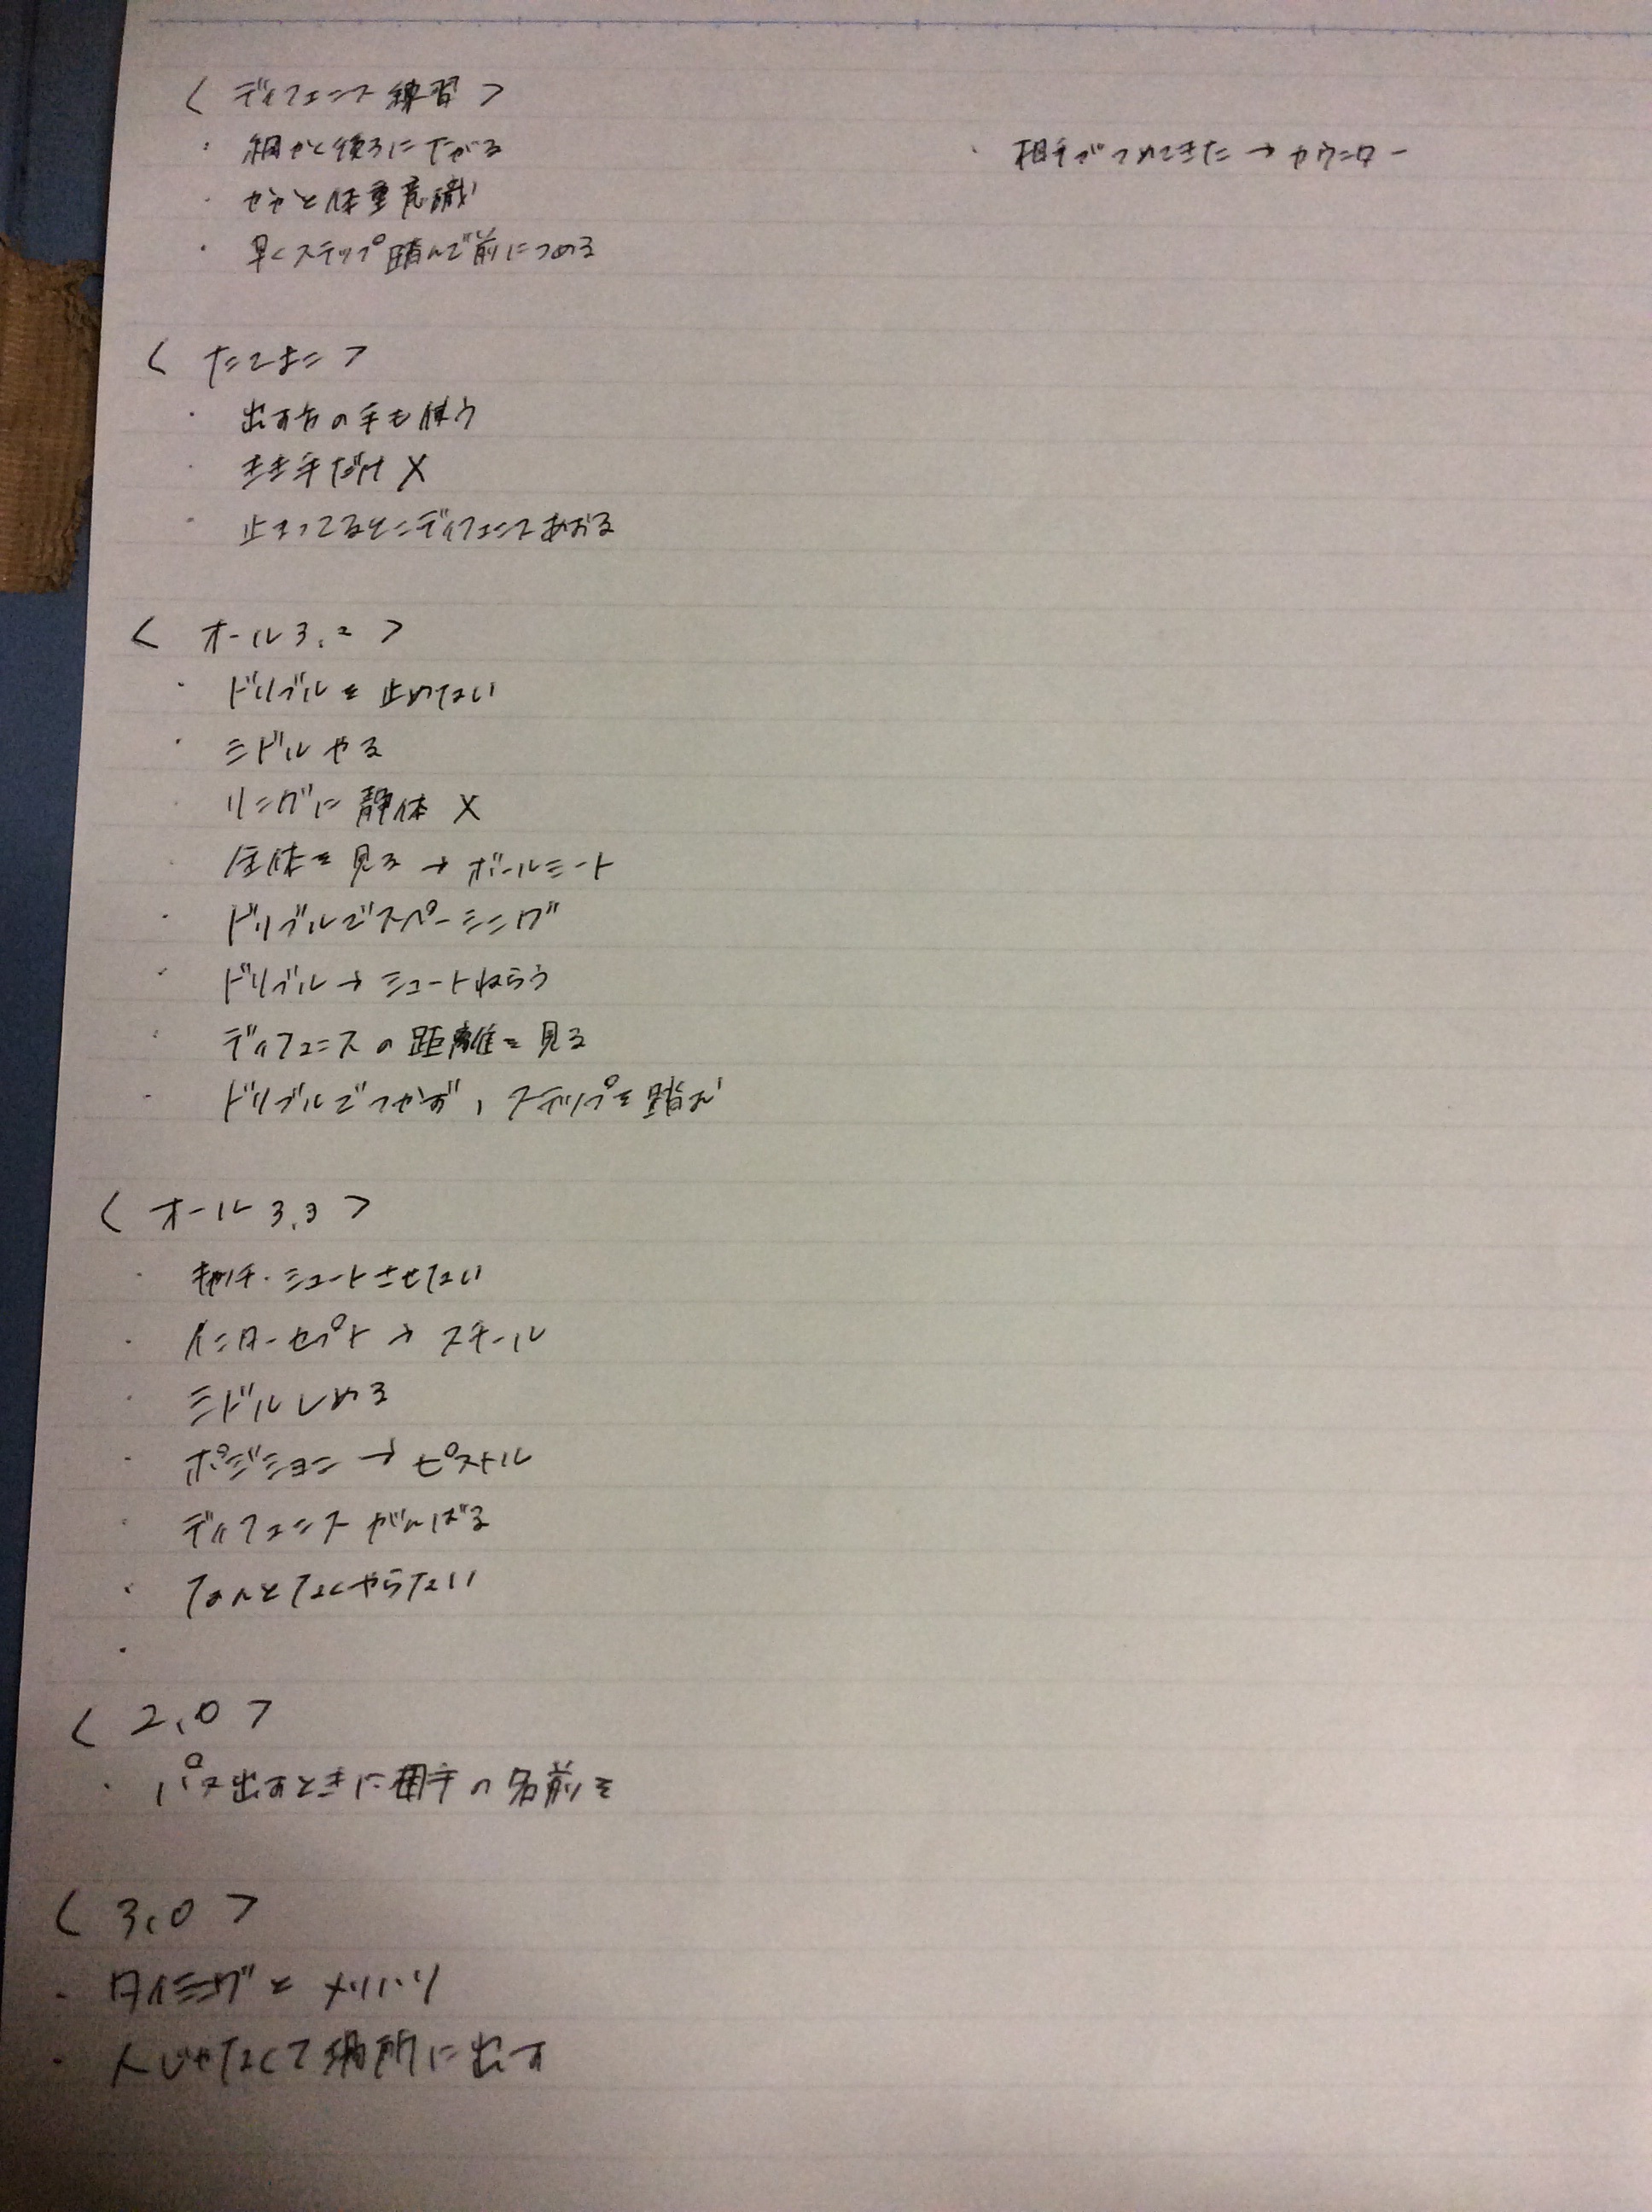 < ディフェンス練習 >
・細かく後ろに下がる
・相手がつめてきた → カウンター
・かかと体重意識
・早くステップ踏んで前につめる
< たてよこ >
・出す方の手も使う
・きき手だけ X
・止まってるとこディフェンスあおる
< オール3.2 >
・ドリブルを止めない
・ミドルやる
・リングに静体 X
・全体を見る → ボールミート
・ドリブルでスペーシング
・ドリブル → シュートねらう
・ディフェンスの距離を見る
・ドリブルでつかず、ステップを踏む
< オール3.3 >
・キャッチ・シュートさせない
・インターセプト → スチール
・ミドルしめる
・ポジション → ピストル
・ディフェンスがんばる
・なんとなくやらない
・
< 2.0 >
・パス出すときに相手の名前を
< 3.0 >
・タイミングとメリハリ
・人じゃなくて場所に出す